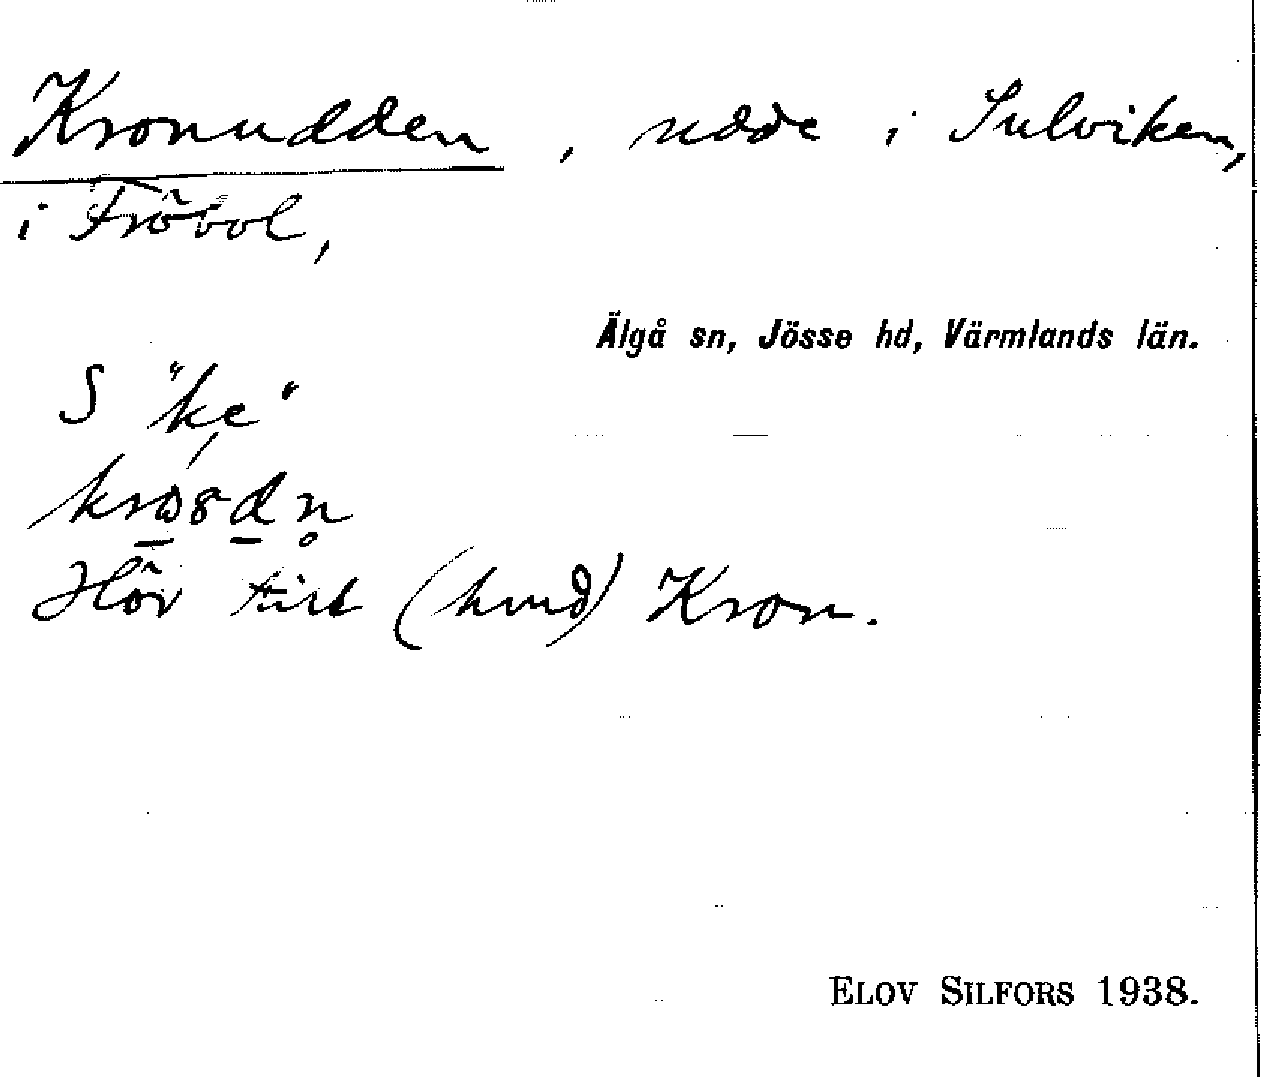 Kronudden, udde i Sulviken,
i Fröbol,
Älgå sn, Jösse hd, Värmlands län.
S "ke"
Hör till (hmd) Kron.
ELOV SILFORS 1938.